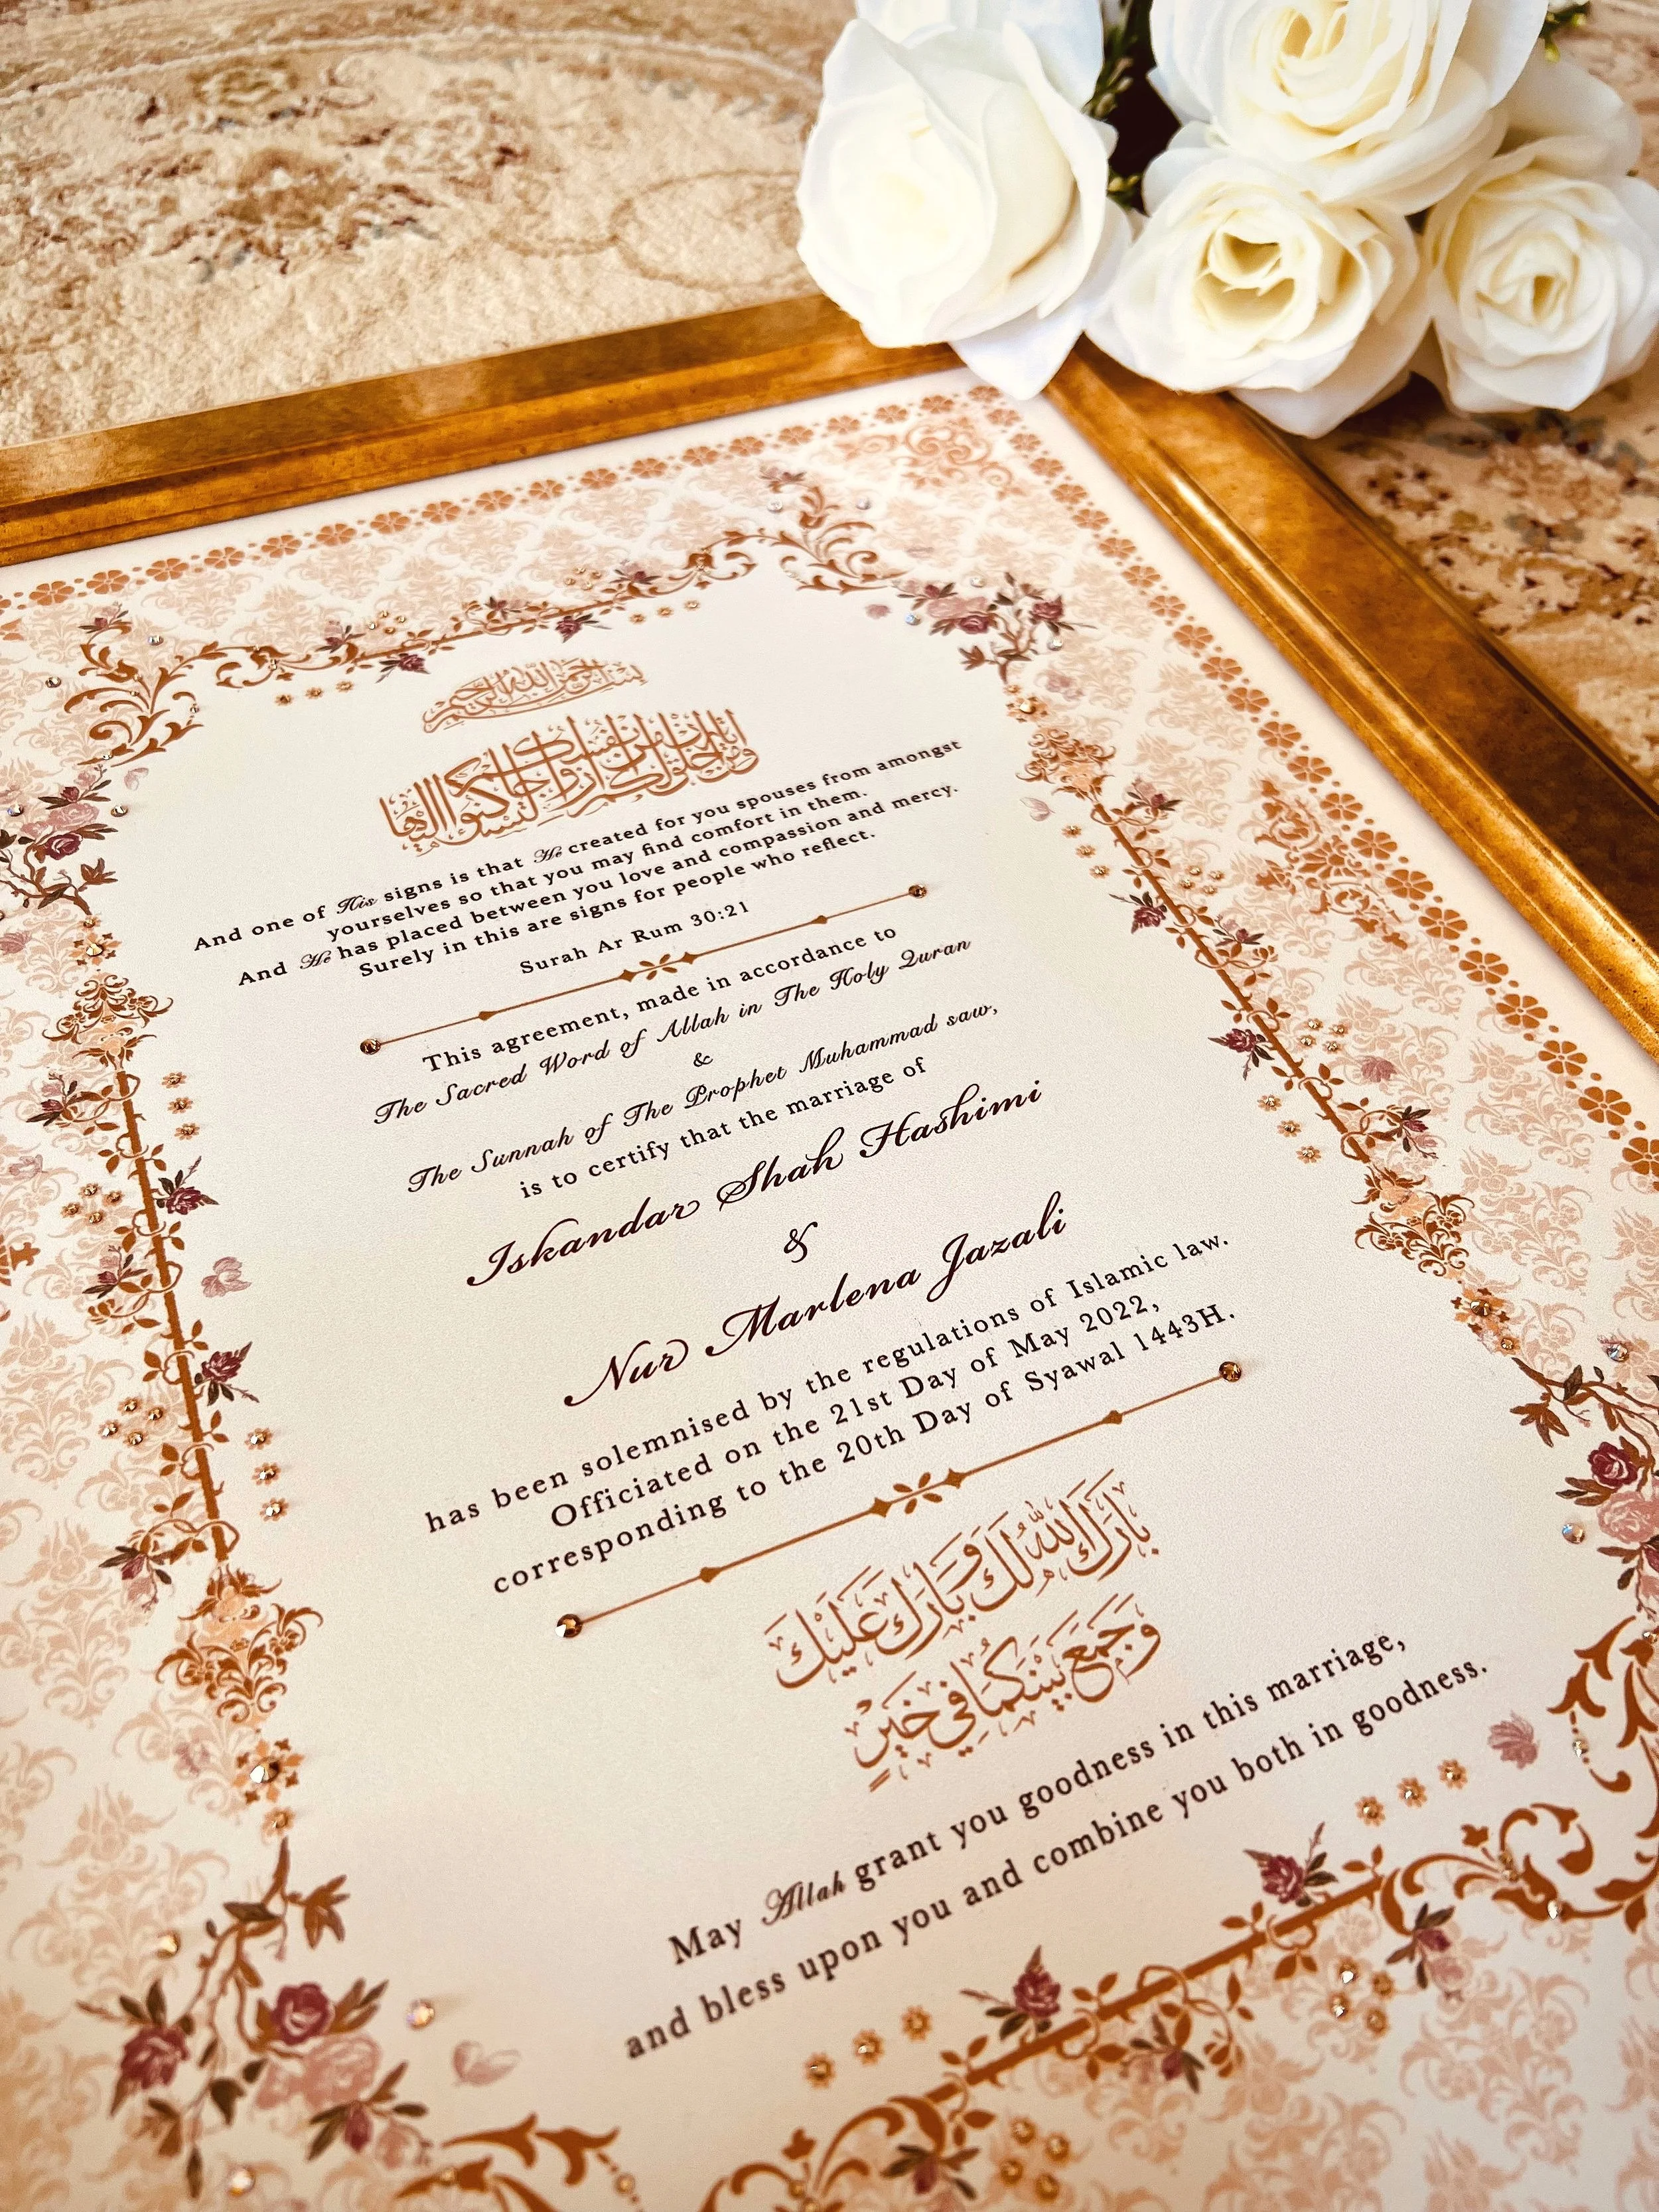 بسم الله الرحمن الرحيم
ومن آياته أن خلق لكم من أنفسكم أزواجا لتسكنوا إليها
And one of His signs is that He created for you spouses from amongst
yourselves so that you may find comfort in them.
And He has placed between you love and compassion and mercy.
Surely in this are signs for people who reflect.
Surah Ar Rum 30:21
This agreement, made in accordance to
The Sacred Word of Allah in The Holy Quran
&
The Sunnah of The Prophet Muhammad saw,
is to certify that the marriage of
Iskandar Shah Hashimi
&
Nur Marlena Jazali
has been solemnised by the regulations of Islamic law.
Officiated on the 21st Day of May 2022,
corresponding to the 20th Day of Syawal 1443H.
بَارَكَ اللّٰهُ لَكَ وَبَارَكَ عَلَيْكَ
وَجَمَعَ بَيْنَكُمَا فِي خَيْرٍ
May Allah grant you goodness in this marriage,
and bless upon you and combine you both in goodness.